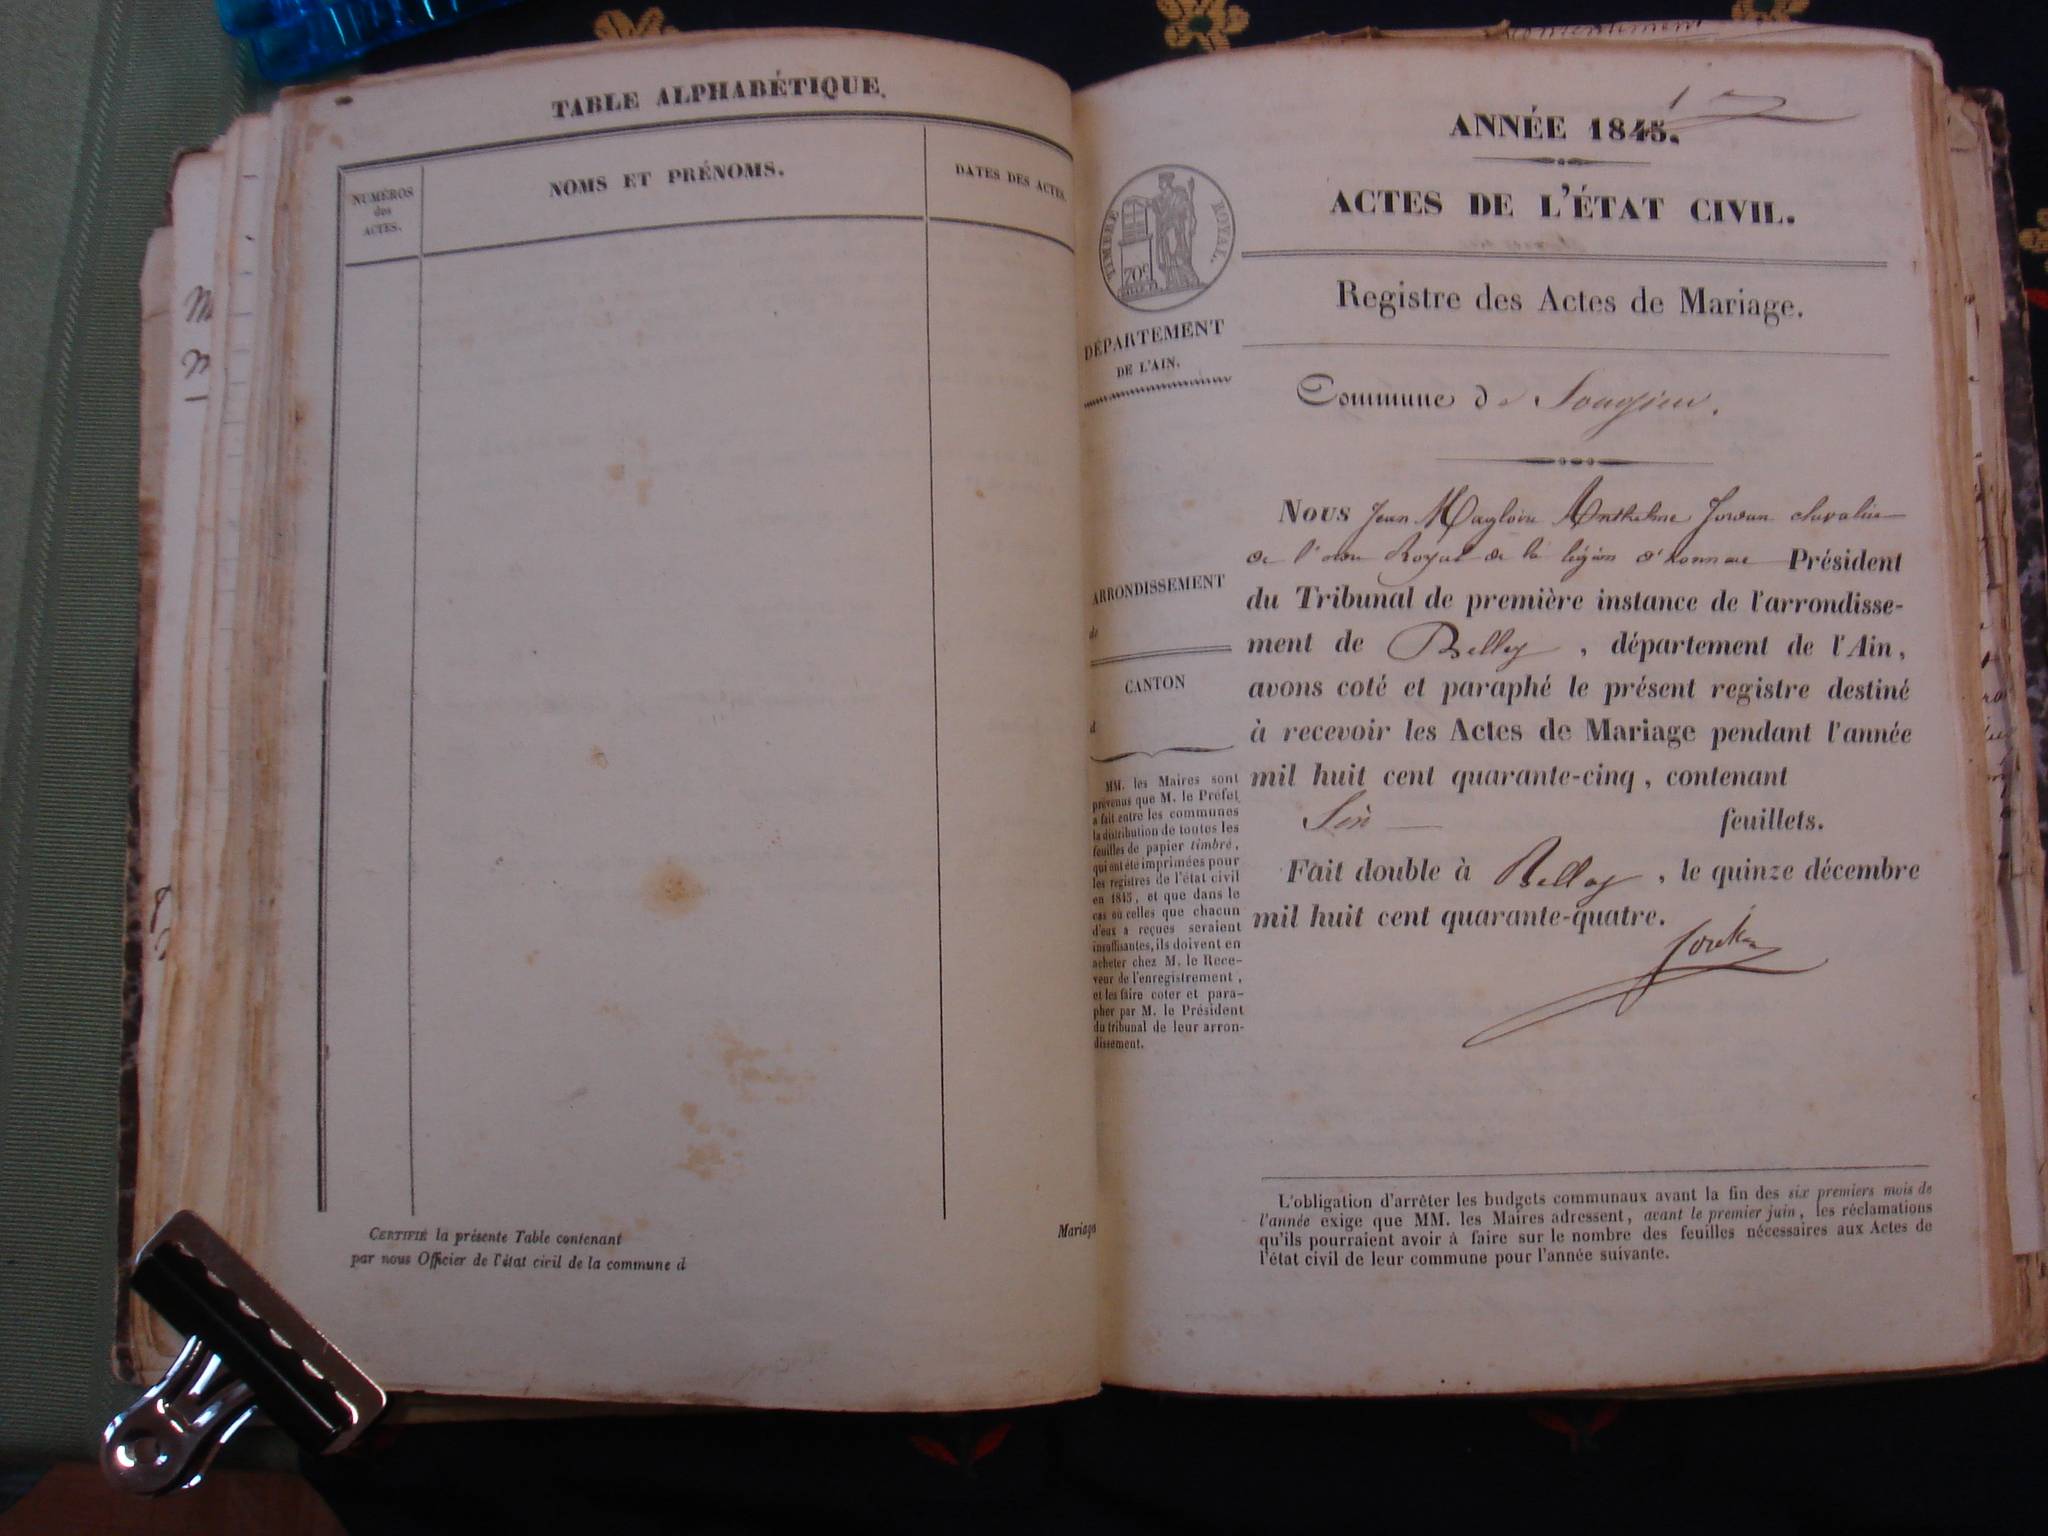 TABLE ALPHABÉTIQUE.
NUMÉROS
des
ACTES.
NOMS ET PRÉNOMS.
DATES DES ACTES.
CERTIFIÉ la présente Table contenant
par nous Officier de l'état civil de la commune d
Mariages
ANNÉE 1845.
ACTES DE L'ÉTAT CIVIL.
TIMBRE ROYAL.
70c
DÉPARTEMENT
DE L'AIN.
Registre des Actes de Mariage.
Commune de Songieu.
ARRONDISSEMENT
de
CANTON
d
MM. les Maires sont
prévenus que M. le Préfet
a fait entre les communes
la distribution de toutes les
feuilles de papier timbré,
qui ont été imprimées pour
les registres de l'état civil
en 1845, et que dans le
cas où celles que chacun
d'eux a reçues seraient
insuffisantes, ils doivent en
acheter chez M. le Rece-
veur de l'enregistrement,
et les faire coter et para-
pher par M. le Président
du tribunal de leur arron-
dissement.
Nous Jean Magloire Anthelme Jordan chevalier
de l'ordre Royal de la légion d'honneur Président
du Tribunal de première instance de l'arrondisse-
ment de Belley, département de l'Ain,
avons coté et paraphé le présent registre destiné
à recevoir les Actes de Mariage pendant l'année
mil huit cent quarante-cinq, contenant
Six feuillets.
Fait double à Belley, le quinze décembre
mil huit cent quarante-quatre.
L'obligation d'arrêter les budgets communaux avant la fin des six premiers mois de
l'année exige que MM. les Maires adressent, avant le premier juin, les réclamations
qu'ils pourraient avoir à faire sur le nombre des feuilles nécessaires aux Actes de
l'état civil de leur commune pour l'année suivante.